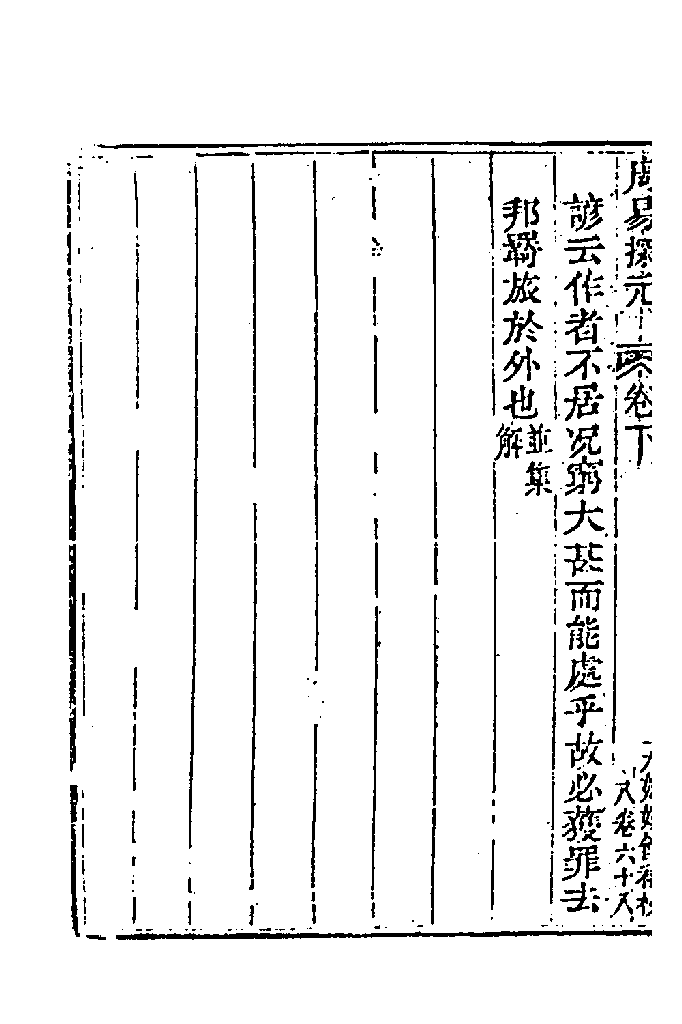 周易探元
卷下
諺云作者不居况窮大甚而能處乎故必獲罪去
邦羇旅於外也並集
解
卷六十八